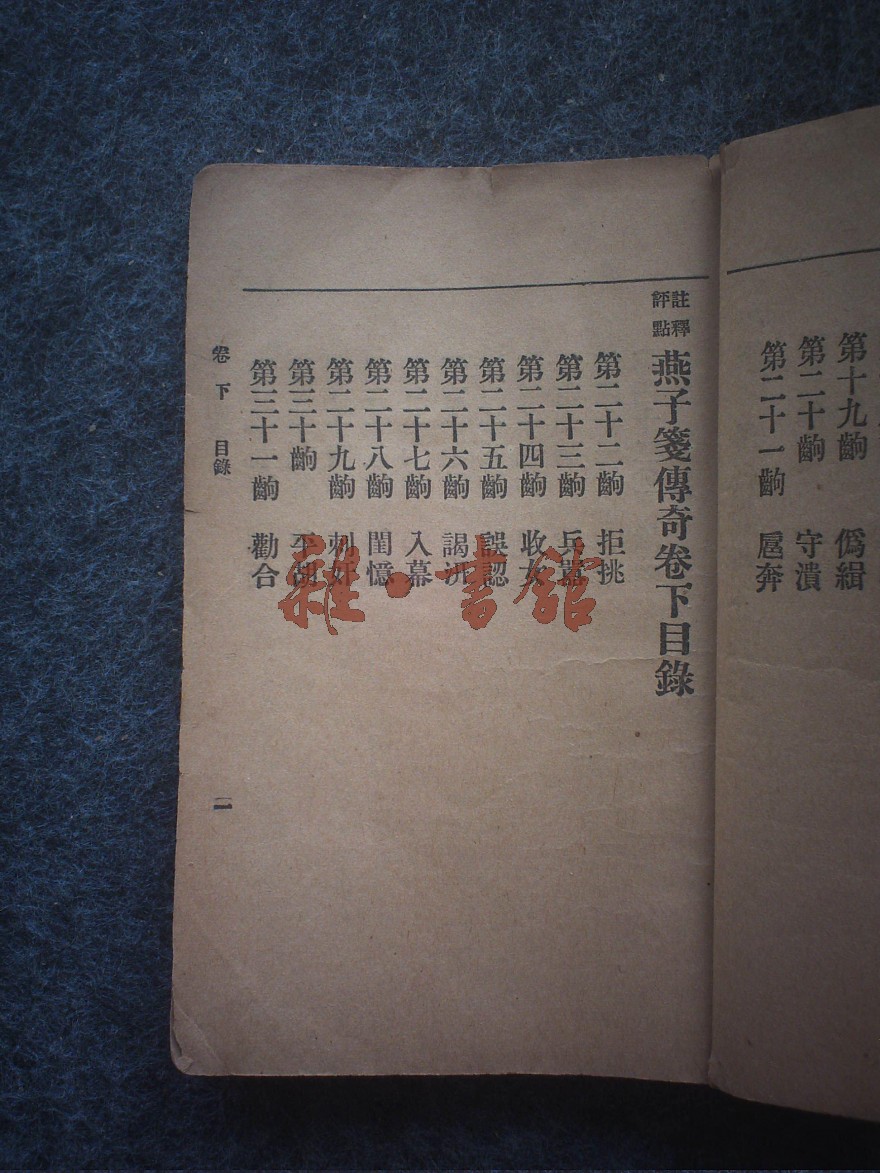 第十九齣 僞緝
第二十齣 守潰
第二十一齣 扈奔
註釋
評點
燕子箋傳奇卷下目錄
第二十二齣 拒挑
第二十三齣 兵囂
第二十四齣 收女
第二十五齣 誤認
第二十六齣 謁汧
第二十七齣 入幕
第二十八齣 閨憶
第二十九齣 刺奸
第三十齣 平胡
第三十一齣 勸合
卷下 目錄 二
雜·書館